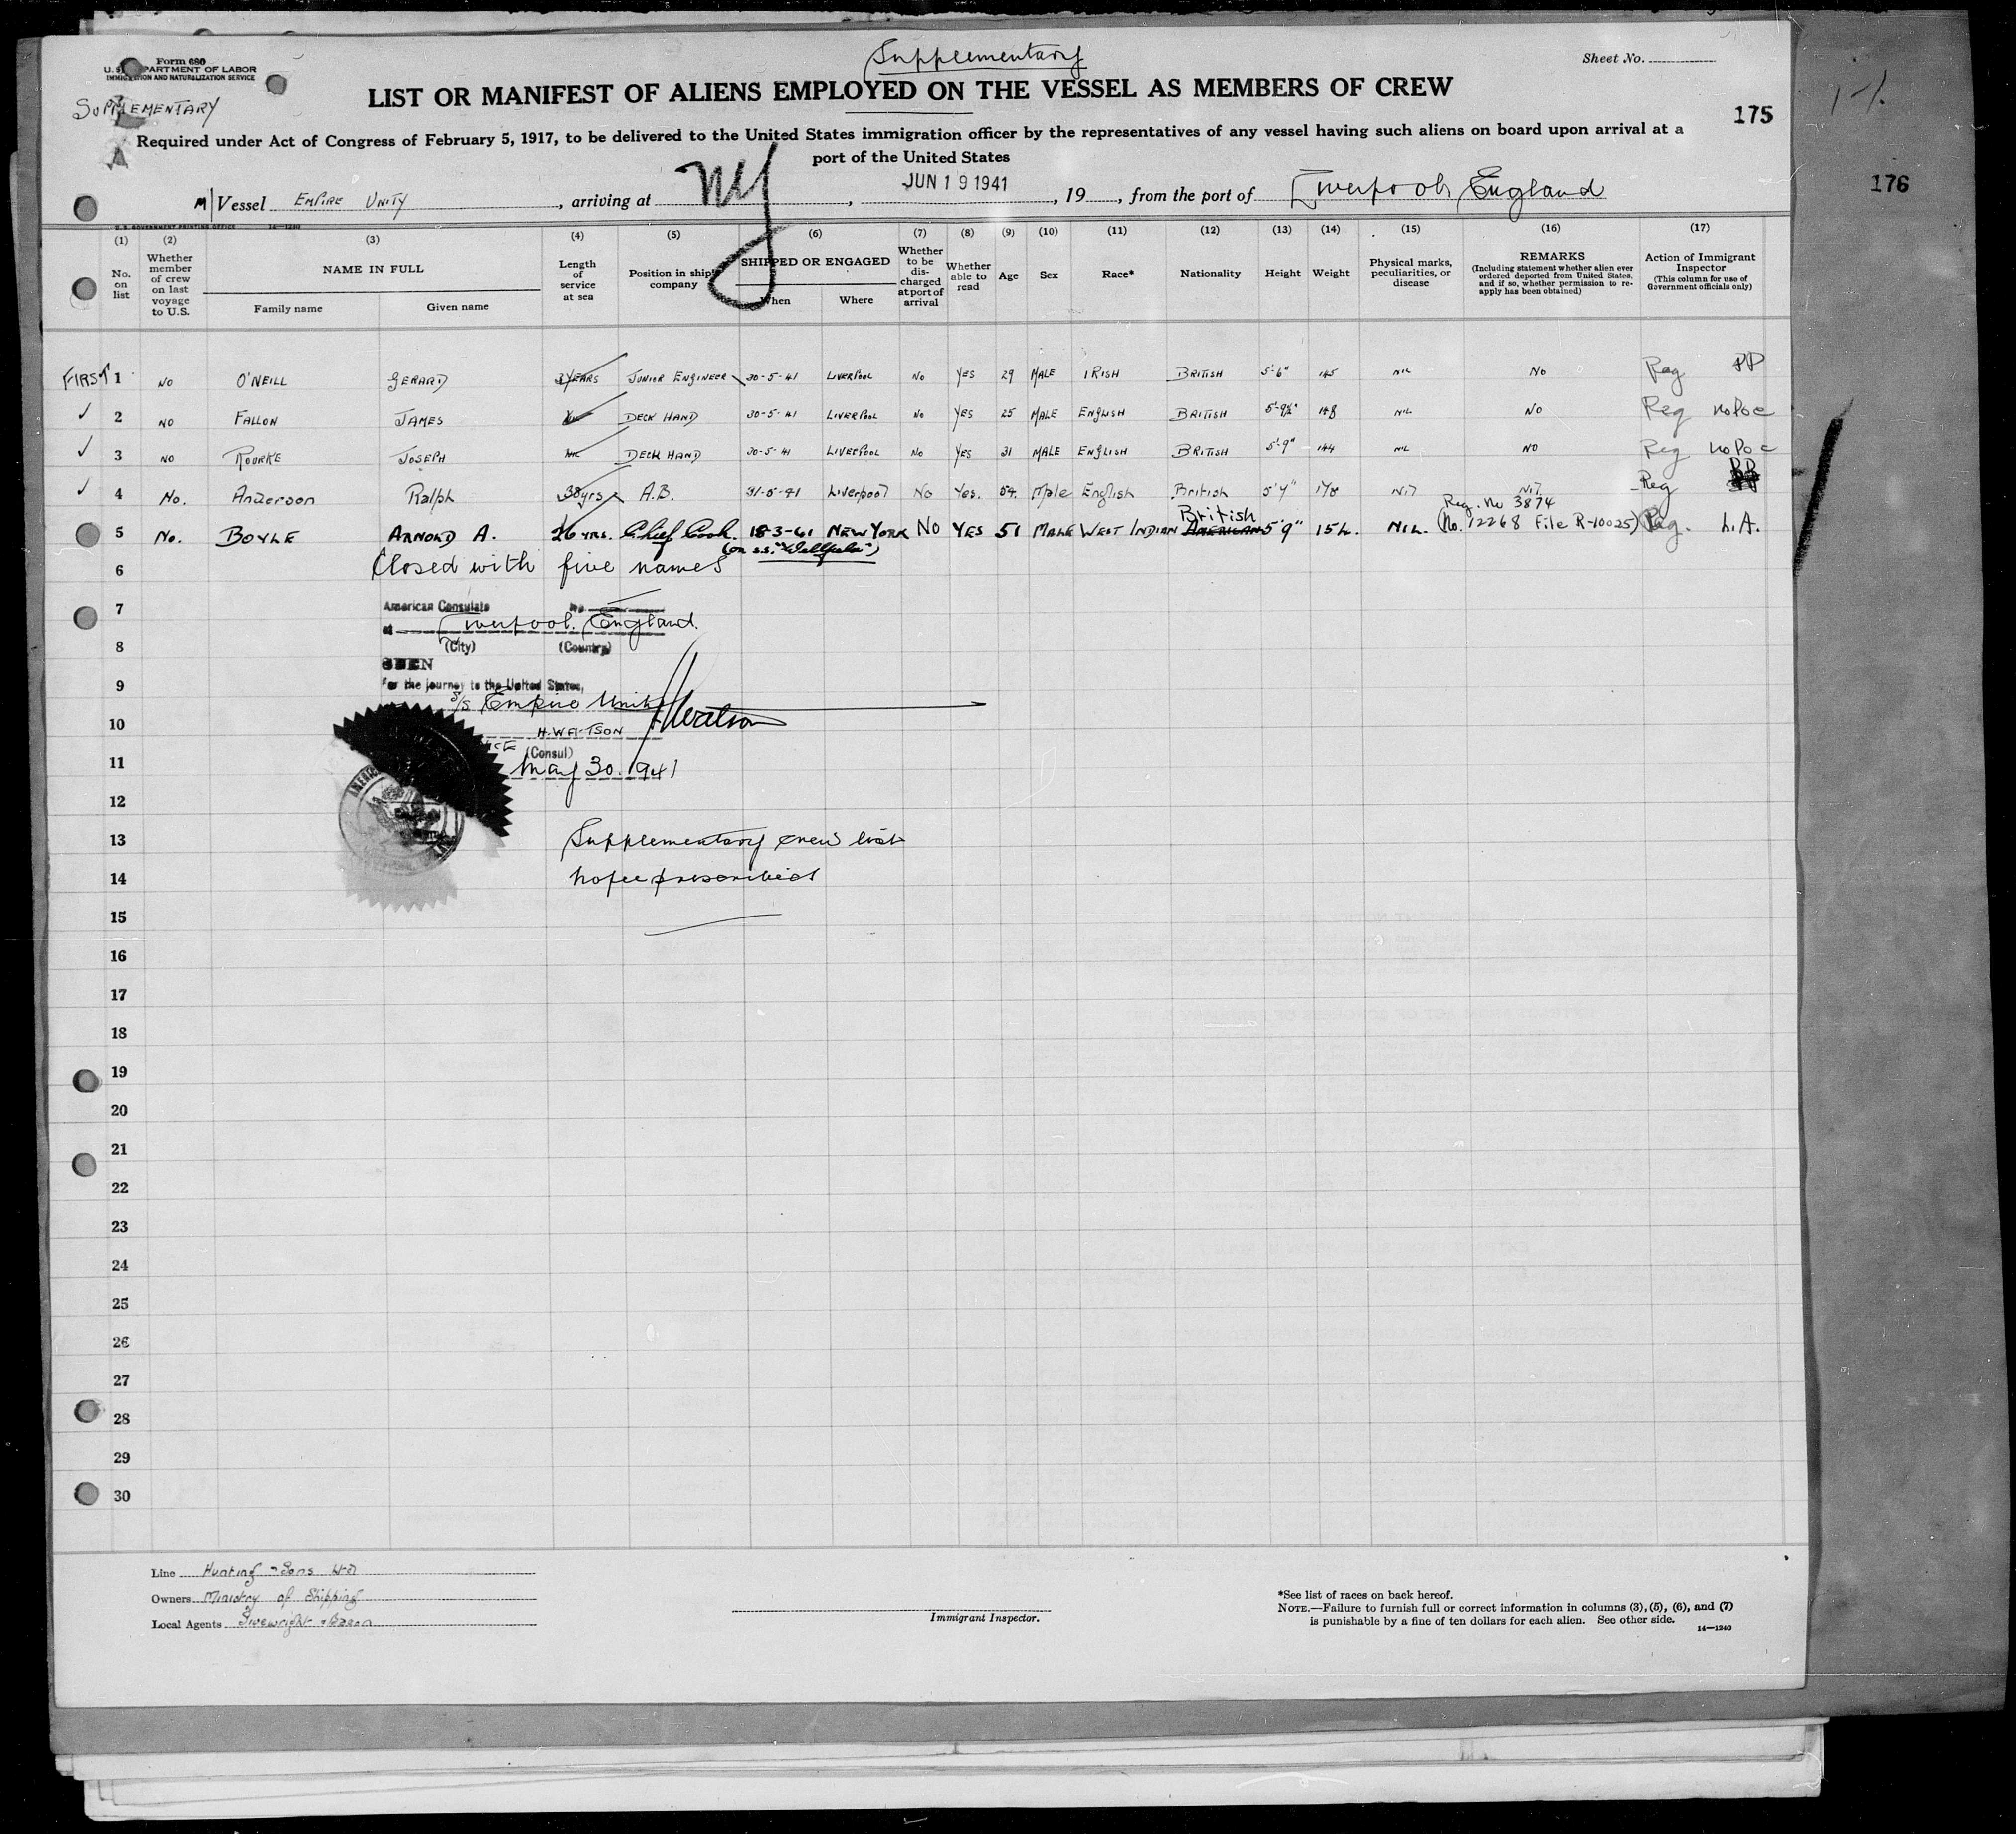 Supplementary
Form 680
U.S. DEPARTMENT OF LABOR
IMMIGRATION AND NATURALIZATION SERVICE
Sheet No.
SUPPLEMENTARY
LIST OR MANIFEST OF ALIENS EMPLOYED ON THE VESSEL AS MEMBERS OF CREW
175
176
Required under Act of Congress of February 5, 1917, to be delivered to the United States immigration officer by the representatives of any vessel having such aliens on board upon arrival at a
port of the United States
M/Vessel EMPIRE UNITY, arriving at NY, JUN 19 1941, 19, from the port of Liverpool, England
U.S. GOVERNMENT PRINTING OFFICE 14—1240
(1) (2) (3) (4) (5) (6) (7) (8) (9) (10) (11) (12) (13) (14) (15) (16) (17)
No. on list
Whether member of crew on last voyage to U.S.
NAME IN FULL
Family name Given name
Length of service at sea
Position in ship's company
SHIPPED OR ENGAGED
When Where
Whether to be discharged at port of arrival
Whether able to read
Age Sex Race* Nationality Height Weight
Physical marks, peculiarities, or disease
REMARKS
(Including statement whether alien ever ordered deported from United States, and if so, whether permission to reapply has been obtained)
Action of Immigrant Inspector
(This column for use of Government officials only)
FIRST 1 NO O'NEILL GERARD 3 YEARS JUNIOR ENGINEER 30-5-41 LIVERPOOL NO YES 29 MALE IRISH BRITISH 5'-6" 145 NIL NO Reg PP
✓ 2 NO FALLON JAMES DECK HAND 30-5-41 LIVERPOOL NO YES 25 MALE ENGLISH BRITISH 5'-9½" 148 NIL NO Reg no Poe
✓ 3 NO ROURKE JOSEPH NIL DECK HAND 30-5-41 LIVERPOOL NO YES 31 MALE ENGLISH BRITISH 5'-9" 144 NIL NO Reg no Poe
✓ 4 No. Anderson Ralph 38yrs A.B. 31-5-41 Liverpool No Yes. 54. Male English British 5'4" 178 Nil Nil Reg PP
Reg. No 3874
British
5 No. BOYLE ARNOLD A. 26 YRS. Chief Cook. 18-3-41 NEW YORK NO YES 51 MALE WEST INDIAN AMERICAN 5'9" 154. NIL. (No. 12268 File R-10025) Reg. L.A.
(on S.S. "Wellfield")
6 Closed with five names
7 American Consulate No.
at Liverpool, England.
8 (City) (Country)
SEEN
9 For the journey to the United States,
S/S Empire Unity
10 H. WATSON HWatson
11 (Consul)
May 30. 1941
12
13 Supplementary crew list
14 No fee prescribed
15
16
17
18
19
20
21
22
23
24
25
26
27
28
29
30
Line Hunting & Sons Ltd
Owners Ministry of Shipping
Local Agents
Immigrant Inspector.
*See list of races on back hereof.
NOTE.—Failure to furnish full or correct information in columns (3), (5), (6), and (7)
is punishable by a fine of ten dollars for each alien. See other side.
14—1240